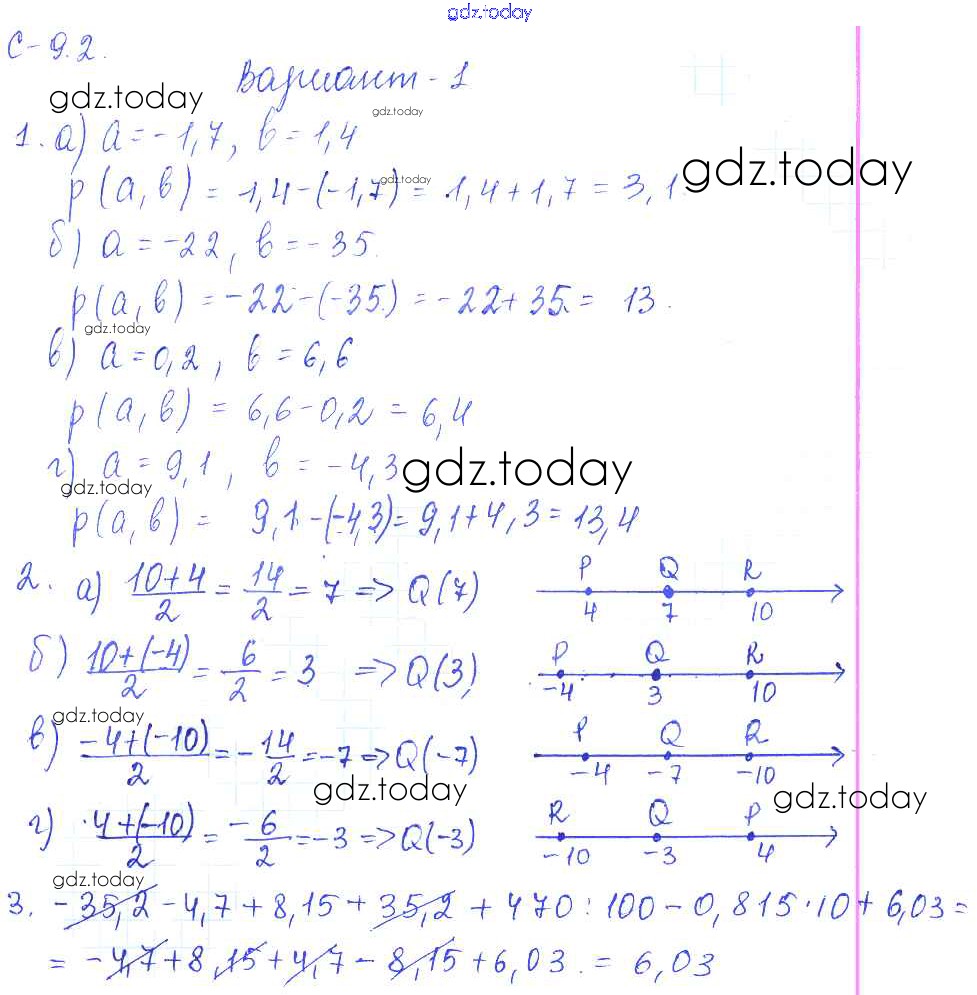 gdz.today
С-9.2.
Вариант-1
gdz.today
gdz.today
1. а) a = -1,7, b = 1,4
gdz.today
p(a, b) = 1,4 - (-1,7) = 1,4 + 1,7 = 3,1
gdz.today
б) a = -22, b = -35.
p(a, b) = -22 - (-35) = -22 + 35 = 13.
gdz.today
в) a = 0,2, b = 6,6
p(a, b) = 6,6 - 0,2 = 6,4
г) a = 9,1, b = -4,3
gdz.today
gdz.today
p(a, b) = 9,1 - (-4,3) = 9,1 + 4,3 = 13,4
2. а) 10+4/2 = 14/2 = 7 => Q(7) P Q R
4 7 10
б) 10+(-4)/2 = 6/2 = 3 => Q(3) P Q R
-4 3 10
gdz.today
в) -4+(-10)/2 = -14/2 = -7 => Q(-7) P Q R
-4 -7 -10
gdz.today
gdz.today
г) 4+(-10)/2 = -6/2 = -3 => Q(-3) R Q P
-10 -3 4
gdz.today
3. -35,2 - 4,7 + 8,15 + 35,2 + 470 : 100 - 0,815 · 10 + 6,03 =
= -4,7 + 8,15 + 4,7 - 8,15 + 6,03. = 6,03